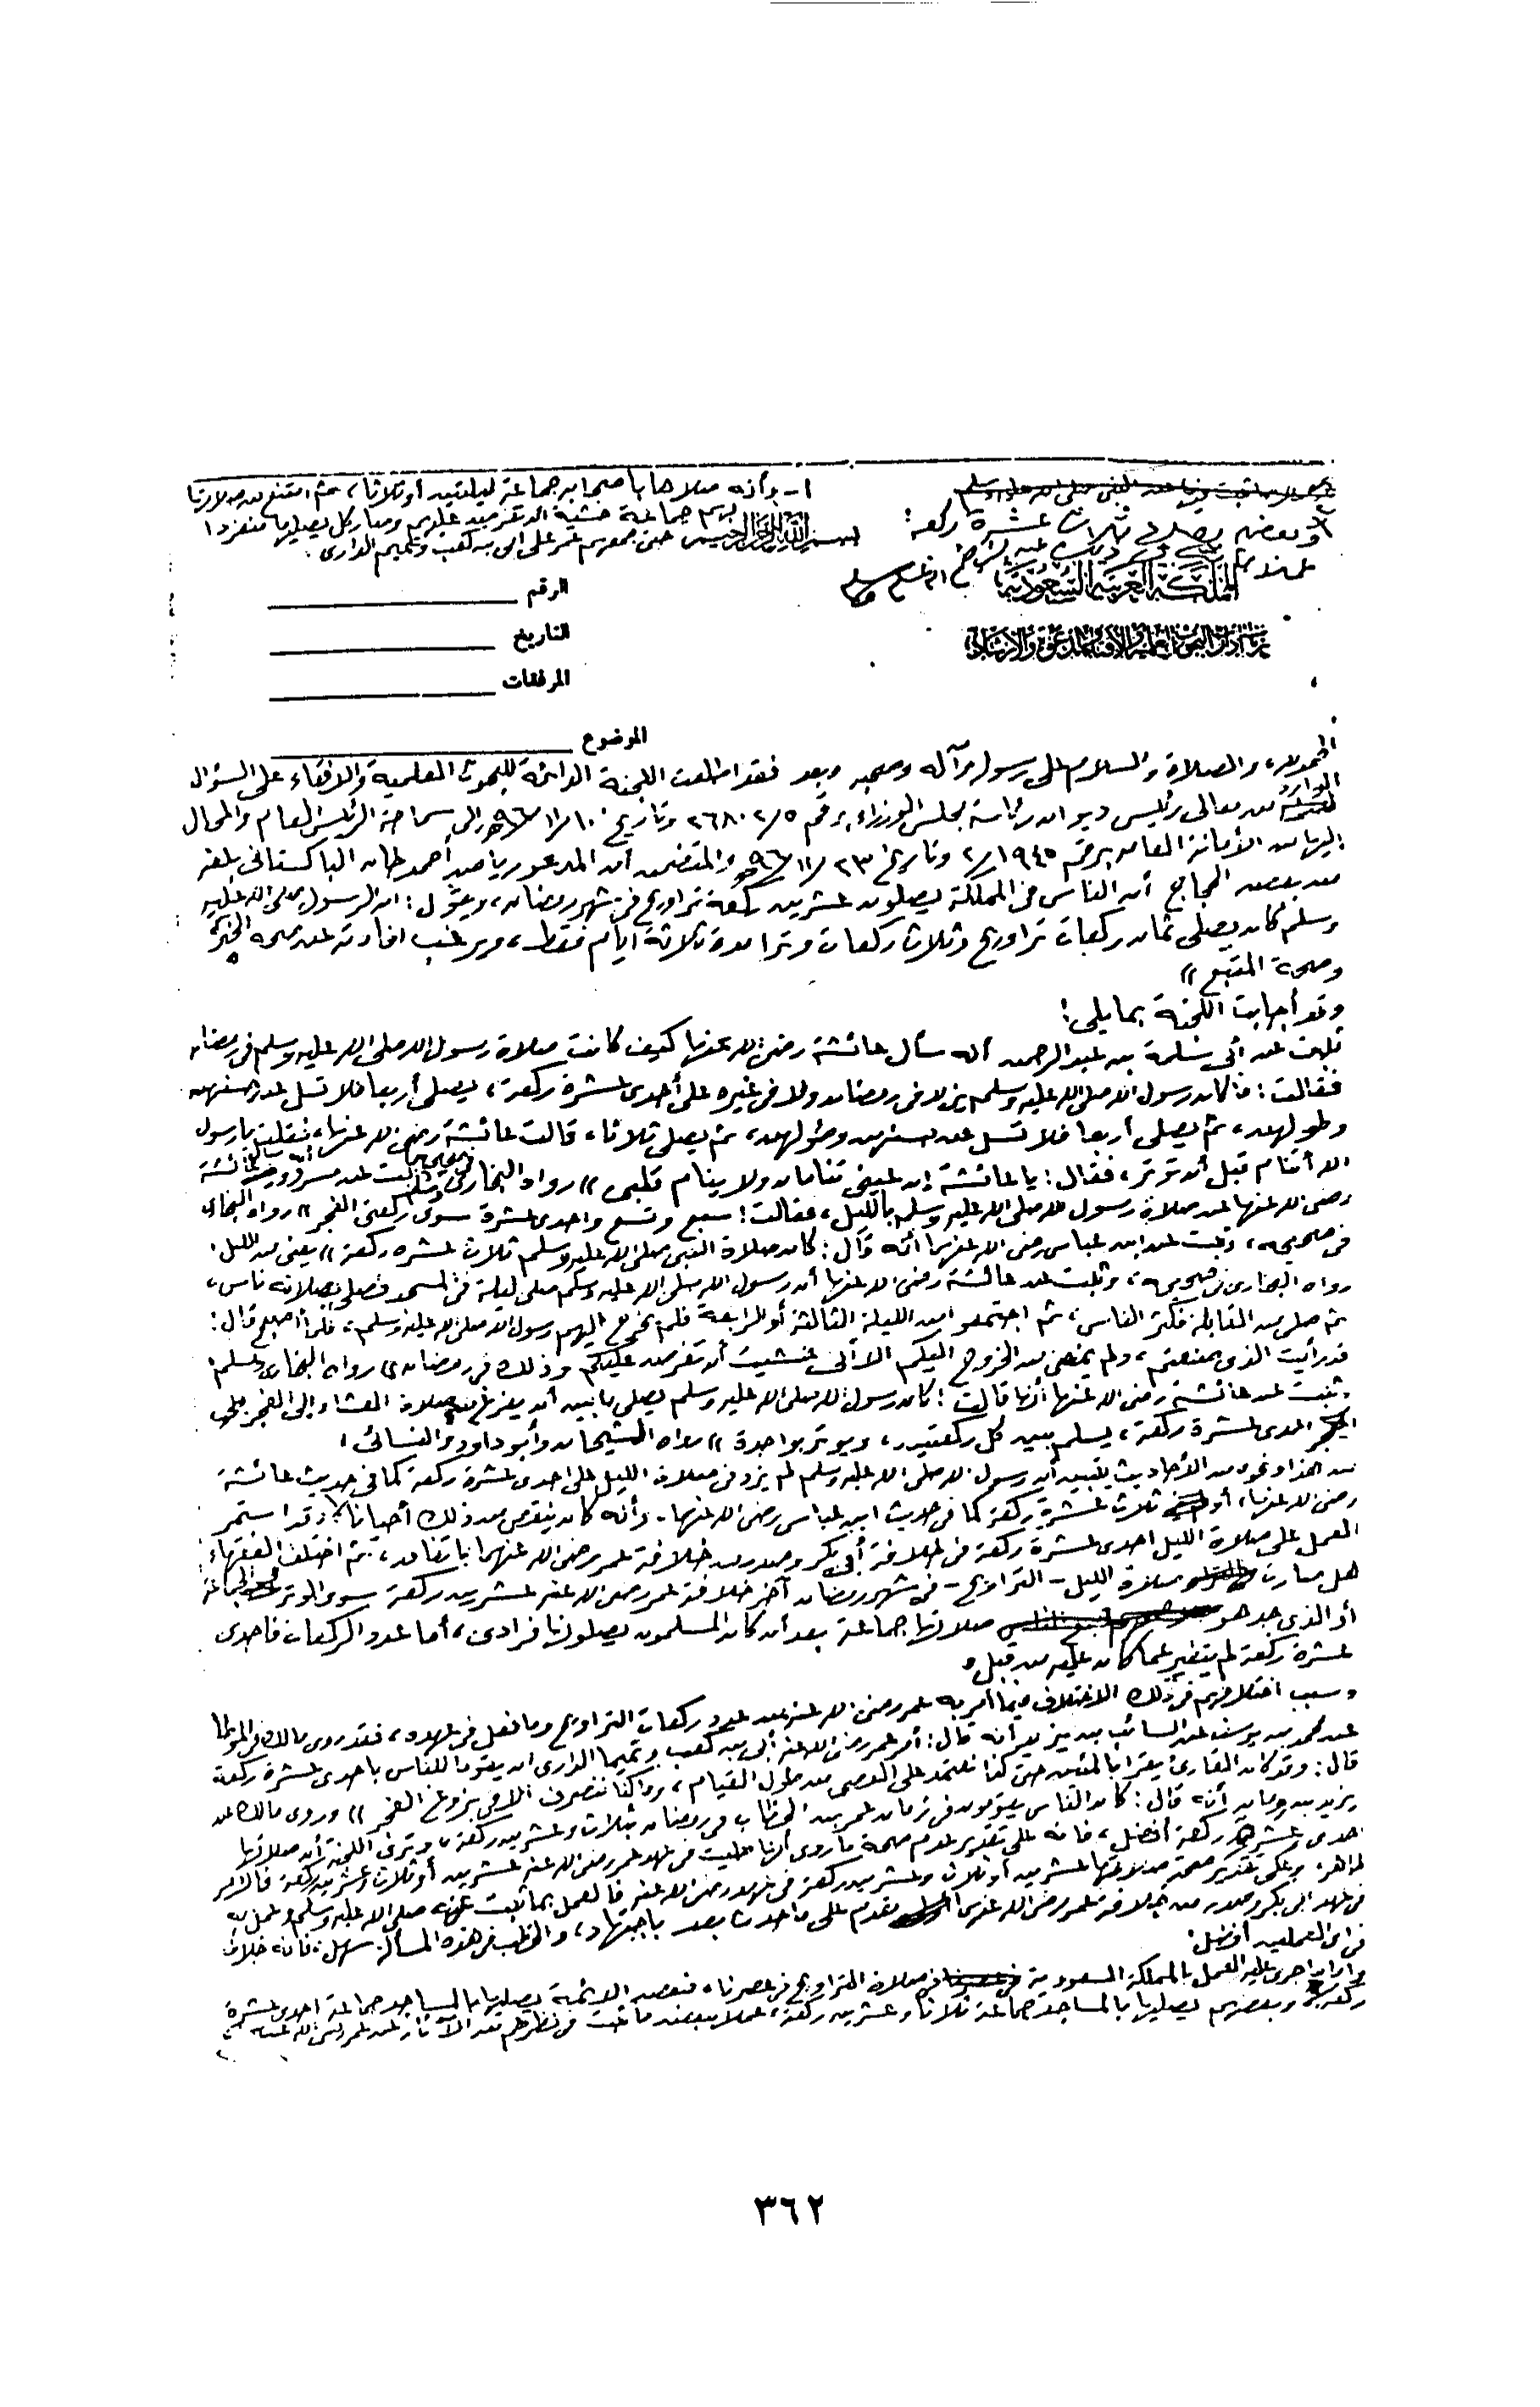 ١- وأنه صلاها بأصحابه جماعة ليلتين أو ثلاثا، ثم امتنع من صلاتها
بهم جماعة خشية أن تفرض عليهم وصار كل يصليها منفردا
حتى جمعهم عمر على أبي بن كعب وتميم الداري.
وبعضهم يصلي ثلاث عشرة ركعة
بسم الله الرحمن الرحيم
المملكة العربية السعودية
رئاسة إدارات البحوث العلمية والإفتاء والدعوة والإرشاد
الرقم
التاريخ
المرفقات
الموضوع
الحمد لله، والصلاة والسلام على رسوله وآله وصحبه وبعد فقد اطلعت اللجنة الدائمة للبحوث العلمية والافتاء على السؤال
الوارد من معالي رئيس ديوان رئاسة مجلس الوزراء برقم ٢٦٨٠٢/٥ وتاريخ ١٠/١١/٩٦هـ إلى سماحة الرئيس العام والمحال
إليها من الأمانة العامة برقم ١٩٤٥/٢ وتاريخ ٢٣/١١/٩٦هـ والمتضمن أن المدعو رياض أحمد خان الباكستاني بلغه
من بعض الحجاج أن الناس في المملكة يصلون عشرين ركعة تراويح في شهر رمضان، ويقول: ان الرسول صلى الله عليه
وسلم كان يصلي ثمان ركعات تراويح وثلاث ركعات وترا مدة ثلاثة أيام فقط، ويرغب افادته عن صحة الخبر
وصحة المتبع))
وقد أجابت اللجنة بما يلي:
ثبت عن أبي سلمة بن عبد الرحمن أنه سأل عائشة رضي الله عنها كيف كانت صلاة رسول الله صلى الله عليه وسلم في رمضان
فقالت: ما كان رسول الله صلى الله عليه وسلم يزيد في رمضان ولا في غيره على أحدى عشرة ركعة، يصلي أربعا فلا تسل عن حسنهن
وطولهن، ثم يصلي أربعا فلا تسل عن حسنهن وطولهن، ثم يصلي ثلاثا، قالت عائشة رضي الله عنها، فقلت يا رسول
الله أتنام قبل أن توتر، فقال: يا عائشة إن عيني تنامان ولا ينام قلبي)) رواه البخاري ومسلم وثبت عن مسروق أنه سأل عائشة
رضي الله عنها عن صلاة رسول الله صلى الله عليه وسلم بالليل، فقالت: سبع وتسع واحدى عشرة سوى ركعتي الفجر)) رواه البخاري
في صحيحه، وثبت عن ابن عباس رضي الله عنهما أنه قال: كان صلاة النبي صلى الله عليه وسلم ثلاث عشره ركعة)) يعني من الليل،
رواه البخاري في صحيحه، وثبت عن عائشة رضي الله عنها أن رسول الله صلى الله عليه وسلم صلى ليلة في المسجد فصلى بصلاته ناس،
ثم صلى من القابلة فكثر الناس، ثم اجتمعوا من الليلة الثالثة أو الرابعة فلم يخرج إليهم رسول الله صلى الله عليه وسلم، فلما أصبح قال:
قد رأيت الذي صنعتم، ولم يمنعني من الخروج اليكم الا أني خشيت أن تفرض عليكم وذلك في رمضان)) رواه البخاري ومسلم
وثبت عن عائشة رضي الله عنها أنها قالت: كان رسول الله صلى الله عليه وسلم يصلي ما بين أن يفرغ من صلاة العشاء إلى الفجر
احدى عشرة ركعة، يسلم بين كل ركعتين، ويوتر بواحدة)) رواه الشيخان وأبو داود والنسائي،
من هذا ونحوه من الأحاديث يتبين أن رسول الله صلى الله عليه وسلم لم يزد في صلاة الليل على احدى عشرة ركعة كما في حديث عائشة
رضي الله عنها، أو ثلاث عشرة ركعة كما في حديث ابن عباس رضي الله عنهما- وأنه كان ينقص من ذلك أحيانا، وقد استمر
العمل على صلاة الليل احدى عشرة ركعة في خلافة أبي بكر وصدر من خلافة عمر رضي الله عنهما باتفاق، ثم اختلف الفقهاء:
هل صارت صلاة الليل - التراويح - في شهر رمضان آخر خلافة عمر رضي الله عنه عشرين ركعة سوى الوتر
أو الذي جد هو صلاتها جماعة بعد أن كان المسلمون يصلونها فرادى، أما عدد الركعات فاحدى
عشرة ركعة لم يتغير عما كان عليه من قبل،
وسبب اختلافهم في ذلك الاختلاف فيما أمر به عمر رضي الله عنه من عدد ركعات التراويح وما فعل في عهده، فقد روى مالك في الموطأ
عن محمد بن يوسف عن السائب بن يزيد أنه قال: أمر عمر رضي الله عنه أبي بن كعب وتميما الداري ان يقوما للناس باحدى عشرة ركعة
قال: وقد كان القارئ يقرأ بالمئين حتى كنا نعتمد على العصي من طول القيام، وما كنا ننصرف الا في بزوغ الفجر)) وروى مالك عن
يزيد بن رومان أنه قال: كان الناس يقومون في زمان عمر بن الخطاب في رمضان بثلاث وعشرين ركعة، وترى اللجنة أن صلاتها
احدى عشرة ركعة أفضل، فانه على تقدير عدم صحة ما روى أنها صليت في عهد عمر رضي الله عنه عشرين أو ثلاث وعشرين ركعة فالأمر
ظاهر، وعلى تقدير صحة صلاتها عشرين أو ثلاث وعشرين ركعة في عهد عمر رضي الله عنه فالعمل بما ثبت عنه صلى الله عليه وسلم وعمل به
في عهد أبي بكر وصدر من خلافة عمر رضي الله عنهما مقدم على ما حدث بعد باجتهاد، والخطب في هذه المسألة سهل، فانه خلاف
في أي العملين أفضل.
وأما ما جرى عليه العمل بالمملكة السعودية في صلاة التراويح في عصرنا، فبعض الائمة يصليها بالمساجد جماعة احدى عشرة
ركعة، وبعضهم يصليها بالمساجد جماعة ثلاثا وعشرين ركعة، عملا ببعض ما ثبت في نظرهم من الآثار عن عمر رضي الله عنه،
٣٦٢